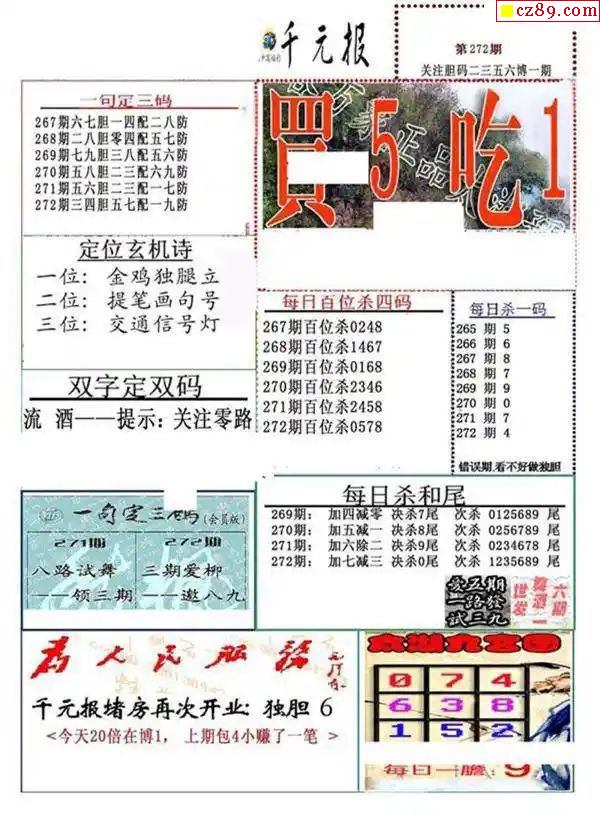 cz89.com
千元报
第272期
关注胆码二三五六博一期
一句定三码
267期六七胆一四配二八防
268期二八胆零四配五七防
269期七九胆三八配五六防
270期五八胆二三配六九防
271期五六胆二三配一七防
272期三四胆五七配一九防
買5吃1
定位玄机诗
一位: 金鸡独腿立
二位: 提笔画句号
三位: 交通信号灯
每日百位杀四码
267期百位杀0248
268期百位杀1467
269期百位杀0168
270期百位杀2346
271期百位杀2458
272期百位杀0578
每日杀一码
265 期 5
266 期 6
267 期 8
268 期 7
269 期 9
270 期 0
271 期 7
272 期 4
错误期,看不好做独胆
双字定双码
流 酒——提示: 关注零路
一句定三码(会员版)
271期
八路试舞
——领三期
272期
三期爱柳
——邀八九
每日杀和尾
269期: 加四减零 决杀7尾 次杀 0125689 尾
270期: 加五减一 决杀8尾 次杀 0256789 尾
271期: 加六除二 决杀9尾 次杀 0234678 尾
272期: 加七减三 决杀0尾 次杀 1235689 尾
爱五期
一路發
试三九
为人民服务
千元报堵房再次开业: 独胆 6
<今天20倍在博1, 上期包4小赚了一笔>
0 7 4
6 3 8
1 5 2
每日一膽: 9